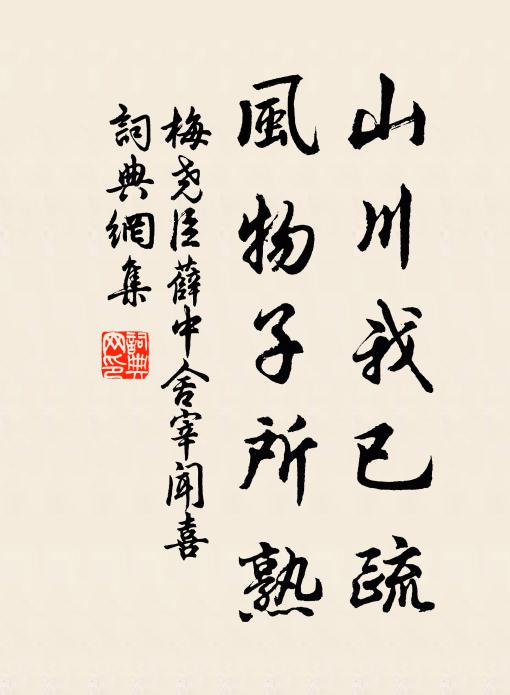 山川我已疏
風物子所熟
梅尧臣薛中舍宰闻喜
詞典網集
詞典网印